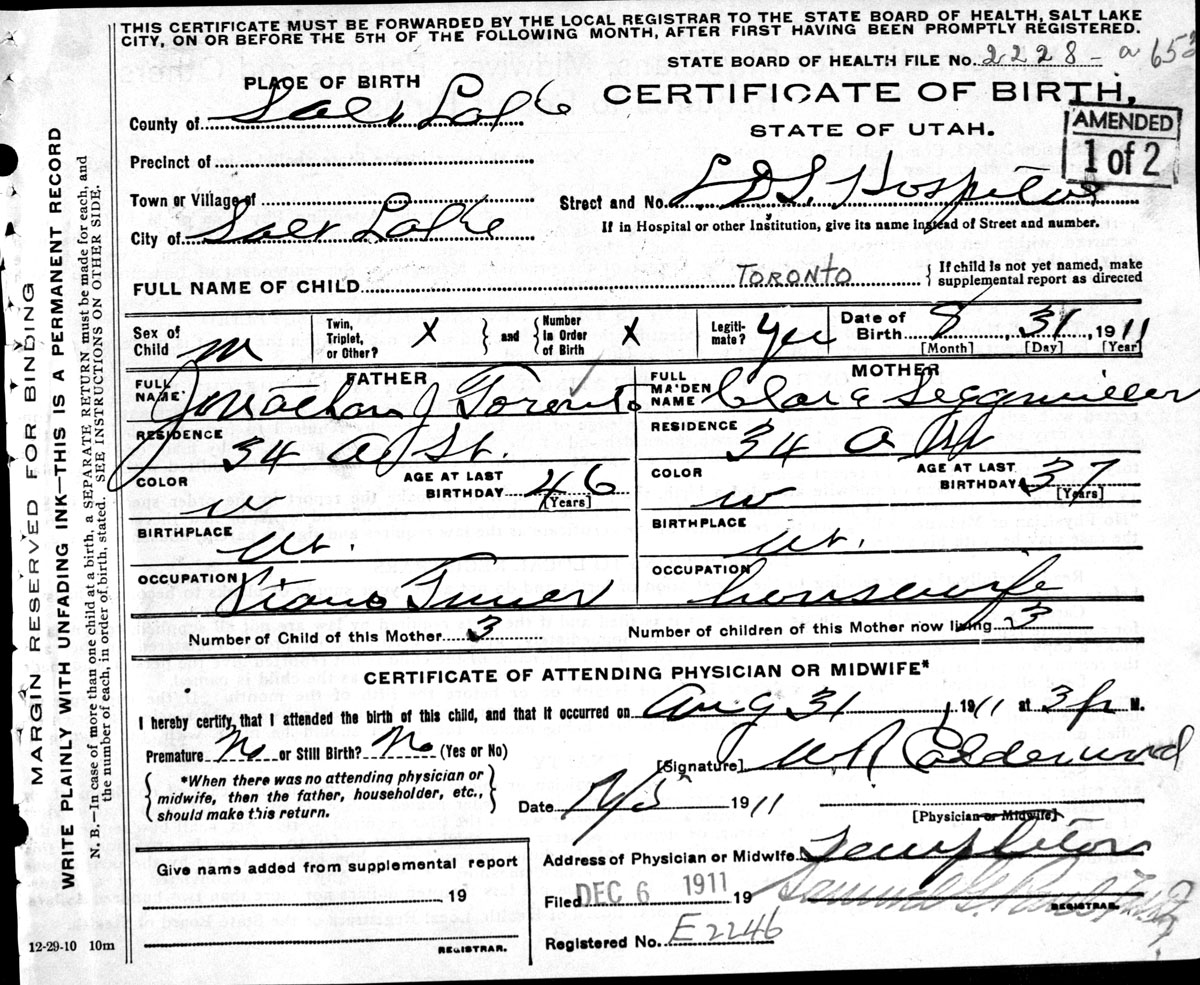 THIS CERTIFICATE MUST BE FORWARDED BY THE LOCAL REGISTRAR TO THE STATE BOARD OF HEALTH, SALT LAKE
CITY, ON OR BEFORE THE 5TH OF THE FOLLOWING MONTH, AFTER FIRST HAVING BEEN PROMPTLY REGISTERED.
STATE BOARD OF HEALTH FILE No. 2228 - a 653
PLACE OF BIRTH
CERTIFICATE OF BIRTH,
County of Salt Lake
STATE OF UTAH.
AMENDED
1 of 2
Precinct of
Town or Village of
Street and No. L.D.S. Hospital
City of Salt Lake
If in Hospital or other Institution, give its name instead of Street and number.
FULL NAME OF CHILD TORONTO
If child is not yet named, make
supplemental report as directed
Sex of Child M
Twin, Triplet, or Other? X
and
Number in Order of Birth X
Legiti-mate? Yes
Date of Birth 8, 31, 1911
[Month] [Day] [Year]
FATHER
MOTHER
FULL NAME Jonathan J Toronto
FULL MAIDEN NAME Clara Seegmiller
RESIDENCE 34 A St.
RESIDENCE 34 A St
COLOR W
AGE AT LAST BIRTHDAY 46 [Years]
COLOR W
AGE AT LAST BIRTHDAY 37 [Years]
BIRTHPLACE Ut.
BIRTHPLACE Ut.
OCCUPATION Piano Tuner
OCCUPATION housewife
Number of Child of this Mother 3
Number of children of this Mother now living 3
CERTIFICATE OF ATTENDING PHYSICIAN OR MIDWIFE*
I hereby certify, that I attended the birth of this child, and that it occurred on Aug 31, 1911 at 3 p M.
Premature No or Still Birth? No (Yes or No)
[Signature] W R Calderwood
*When there was no attending physician or
midwife, then the father, householder, etc.,
should make this return.
Date 1911
[Physician or Midwife]
Address of Physician or Midwife Templeton
Give name added from supplemental report
19
Filed DEC 6 1911 19
REGISTRAR.
Registered No. E2246
REGISTRAR.
12-29-10 10m
MARGIN RESERVED FOR BINDING
WRITE PLAINLY WITH UNFADING INK—THIS IS A PERMANENT RECORD
N. B.—In case of more than one child at a birth, a SEPARATE RETURN must be made for each, and
the number of each, in order of birth, stated. SEE INSTRUCTIONS ON OTHER SIDE.